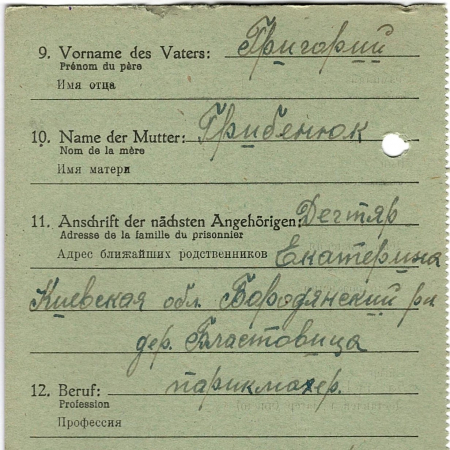 9. Vorname des Vaters: Григорий
Prénom du père
Имя отца
10. Name der Mutter: Грибенюк
Nom de la mère
Имя матери
11. Anschrift der nächsten Angehörigen: Дегтяр
Adresse de la famille du prisonnier
Адрес ближайших родственников Екатерина
Киевская обл. Бородянский рн
дер.
12. Beruf: парикмахер.
Profession
Профессия